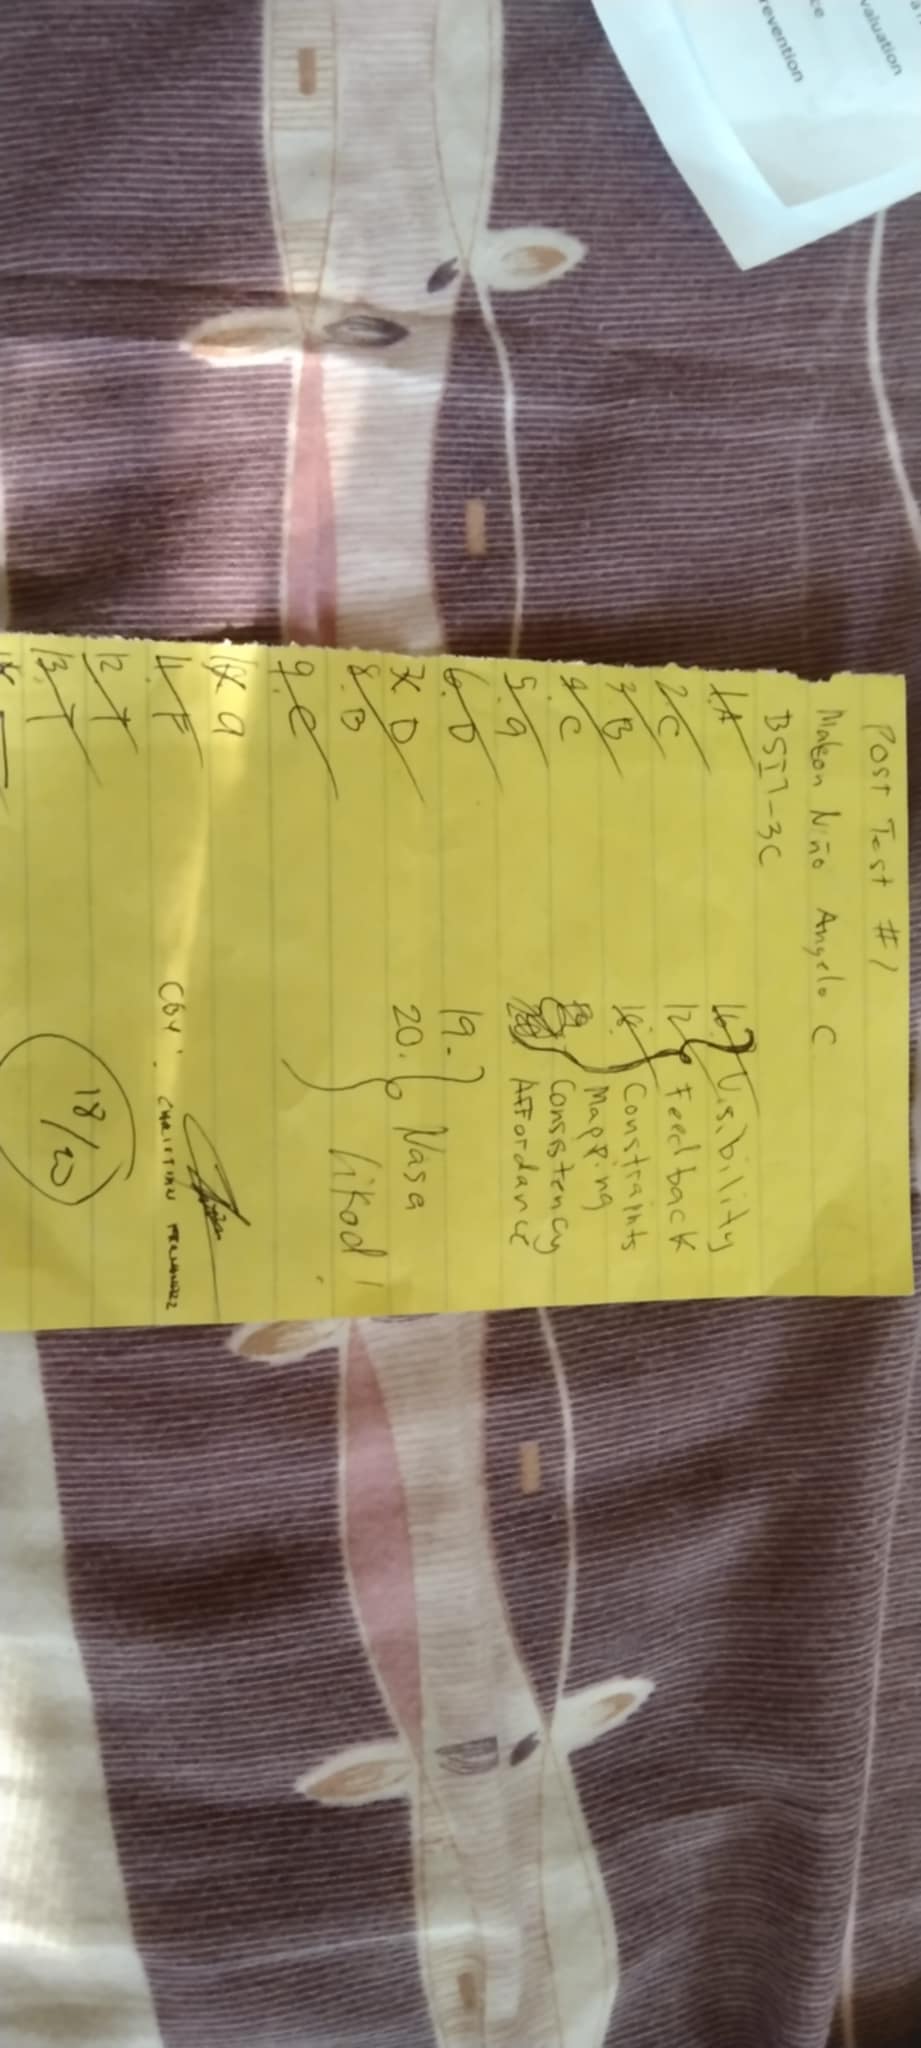 valuation
ce
revention
Post Test #1
Makon Niño Angelo C
BSIT-3C
1. A
2. C
3. B
4. C
5. a
6. D
7. D
8. B
9. C
10. a
11. F
12. T
13. T
16. Visibility
17. Feedback
18. Constraints
Mapping
Consistency
Affordance
19.
20. Nasa
likod!
CBY: CHRISTIAN FERNANDEZ
18/20